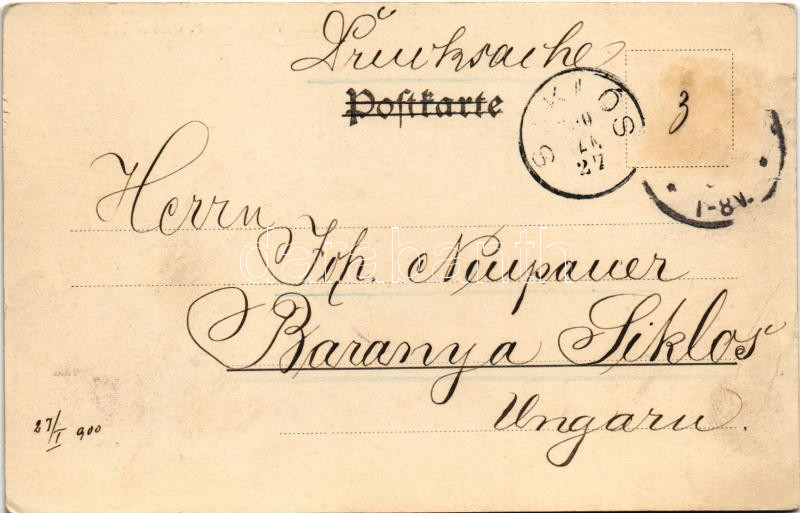 Drucksache
Postkarte
SIKLÓS
27
3
7-8N.
Herrn
Joh. Neupauer
Baranya Siklos
Ungarn.
27/I 900
darabanth